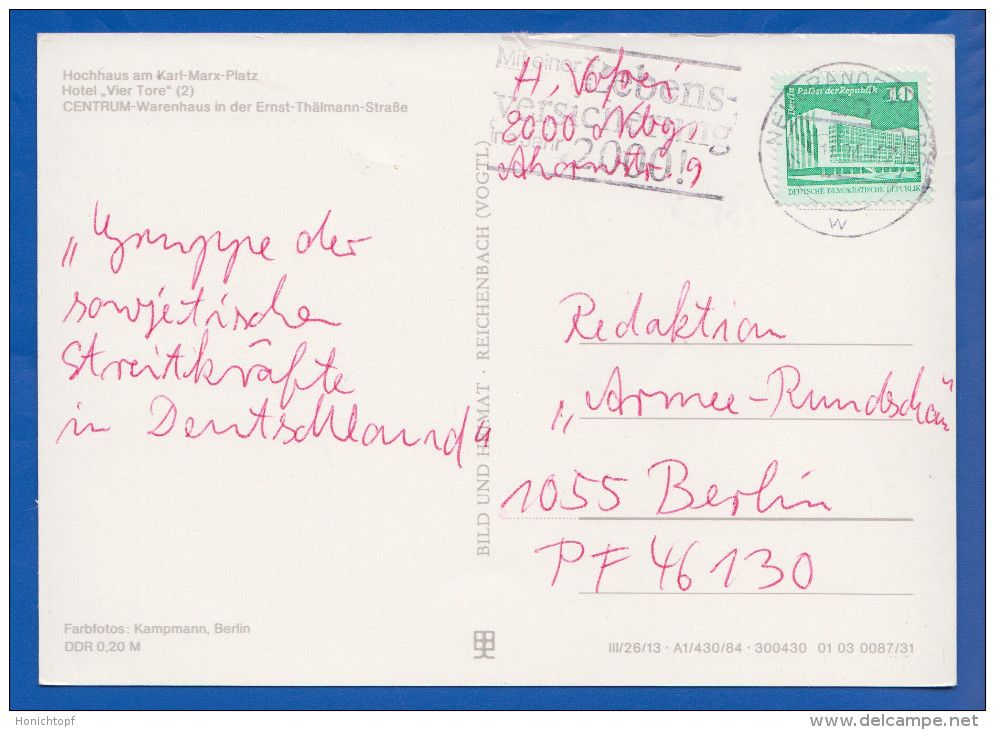 Hochhaus am Karl-Marx-Platz
Hotel „Vier Tore" (2)
CENTRUM-Warenhaus in der Ernst-Thälmann-Straße
Mit einer Lebens-
versicherung
ins Jahr 2000!
H.
2000 Nbg.
Ahornstr. 9
Berlin Palast der Republik 10
DEUTSCHE DEMOKRATISCHE REPUBLIK
W
„Gruppe der
sowjetischen
Streitkräfte
in Deutschland"
BILD UND HEIMAT · REICHENBACH (VOGTL)
Redaktion
„Armee-Rundschau"
1055 Berlin
PF 46130
Farbfotos: Kampmann, Berlin
DDR 0,20 M
III/26/13 · A1/430/84 · 300430 01 03 0087/31
Honichtopf
delcampe.net